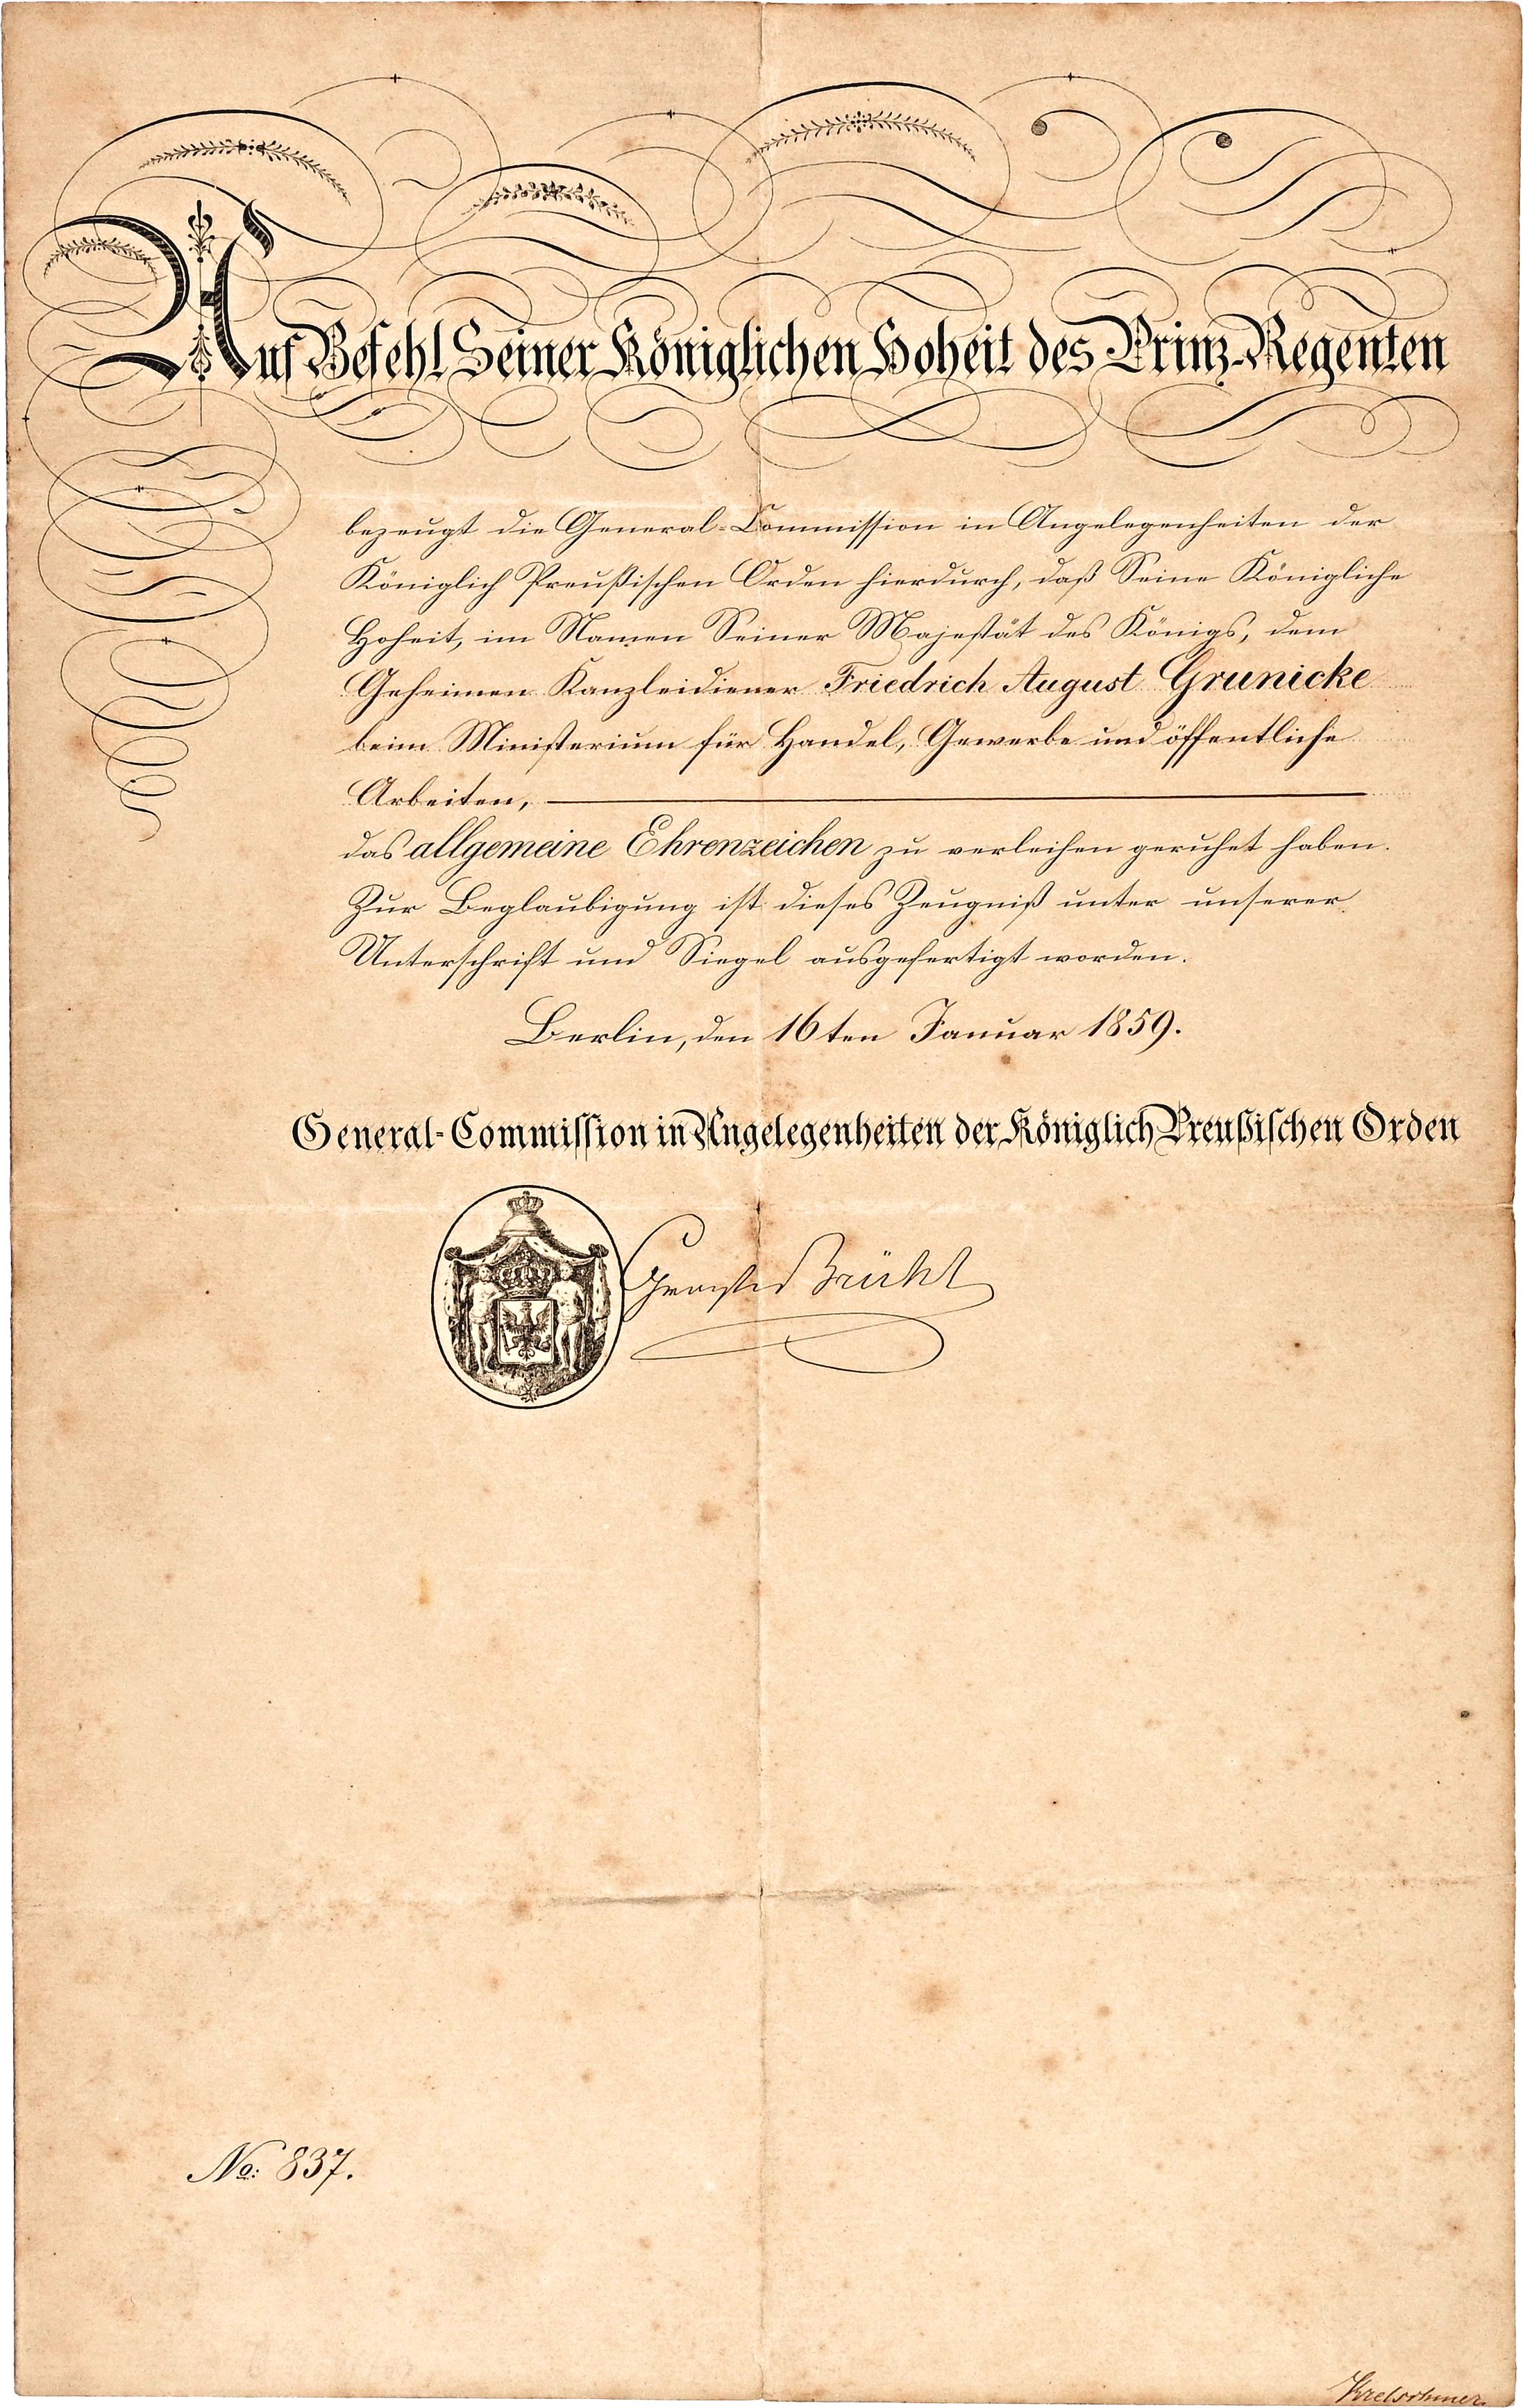 Auf Befehl Seiner Königlichen Hoheit des Prinz-Regenten
bezeugt die General-Commission in Angelegenheiten der
Königlich Preußischen Orden hierdurch, daß Seine Königliche
Hoheit, im Namen Seiner Majestät des Königs, dem
Geheimen Kanzleidiener Friedrich August Grunicke
beim Ministerium für Handel, Gewerbe und öffentliche
Arbeiten,
das allgemeine Ehrenzeichen zu verleihen geruhet haben.
Zur Beglaubigung ist dieses Zeugniß unter unserer
Unterschrift und Siegel ausgefertigt worden.
Berlin, den 16ten Januar 1859.
General-Commission in Angelegenheiten der Königlich Preußischen Orden
Brühl
No: 837.
Kretschmer